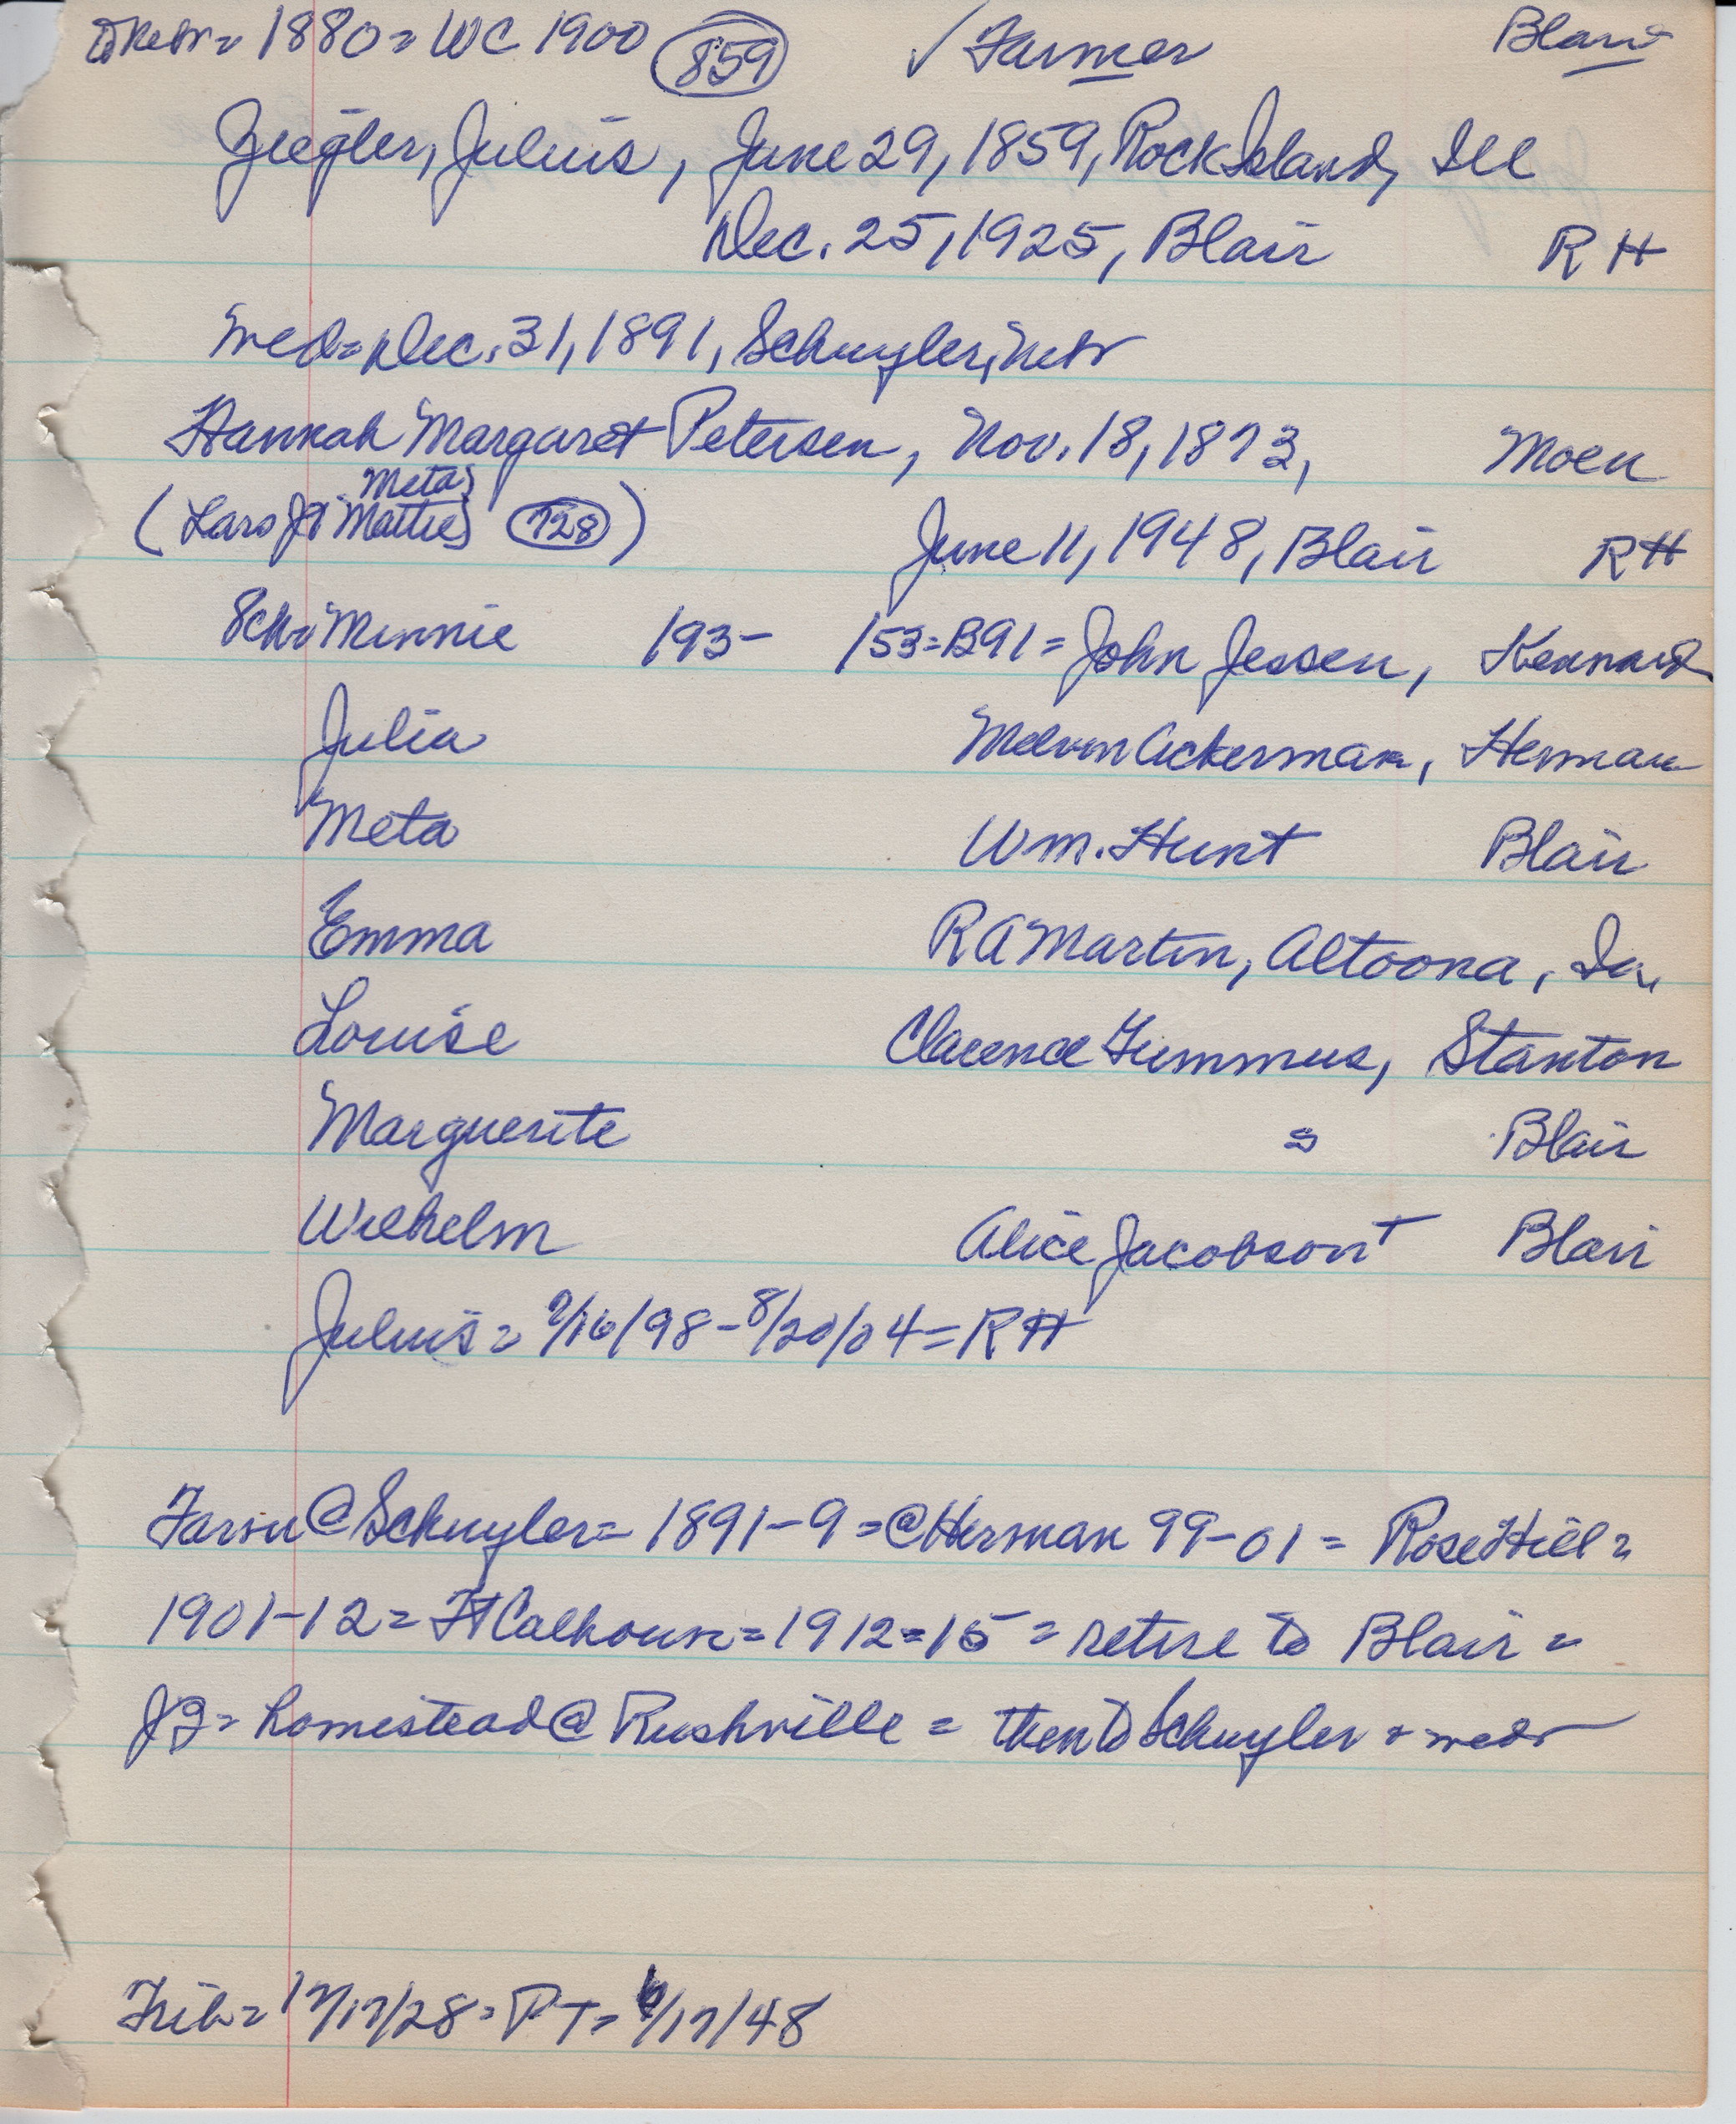 to Nebr = 1880 = WC 1900 859 ✓ Farmer Blair
Ziegler, Julius, June 29, 1859, Rock Island, Ill
Dec. 25, 1925, Blair RH
wed = Dec. 31, 1891, Schuyler, Nebr
Hannah Margaret Petersen, Nov. 18, 1873, Moen
Meta
(Lars J & Mattie 728)
June 11, 1948, Blair RH
Minnie 193- 153 = B91 = John Jessen, Kennard
Julia Melvin Ackerman, Herman
Meta Wm. Hunt Blair
Emma RA Martin, Altoona, Ia.
Louise Clarence Stanton
Marguerite = Blair
Wilhelm Alice Jacobson Blair
Julius = /16/98 - 8/20/04 = RH
Farm @ Schuyler = 1891-9 = @ Herman 99-01 = Rose Hill =
1901-12 = Ft Calhoun = 1912 = 15 = retire to Blair =
JZ = homestead @ Rushville = then to Schuyler & wed
Trib = /17/28 = PT = 6/17/48